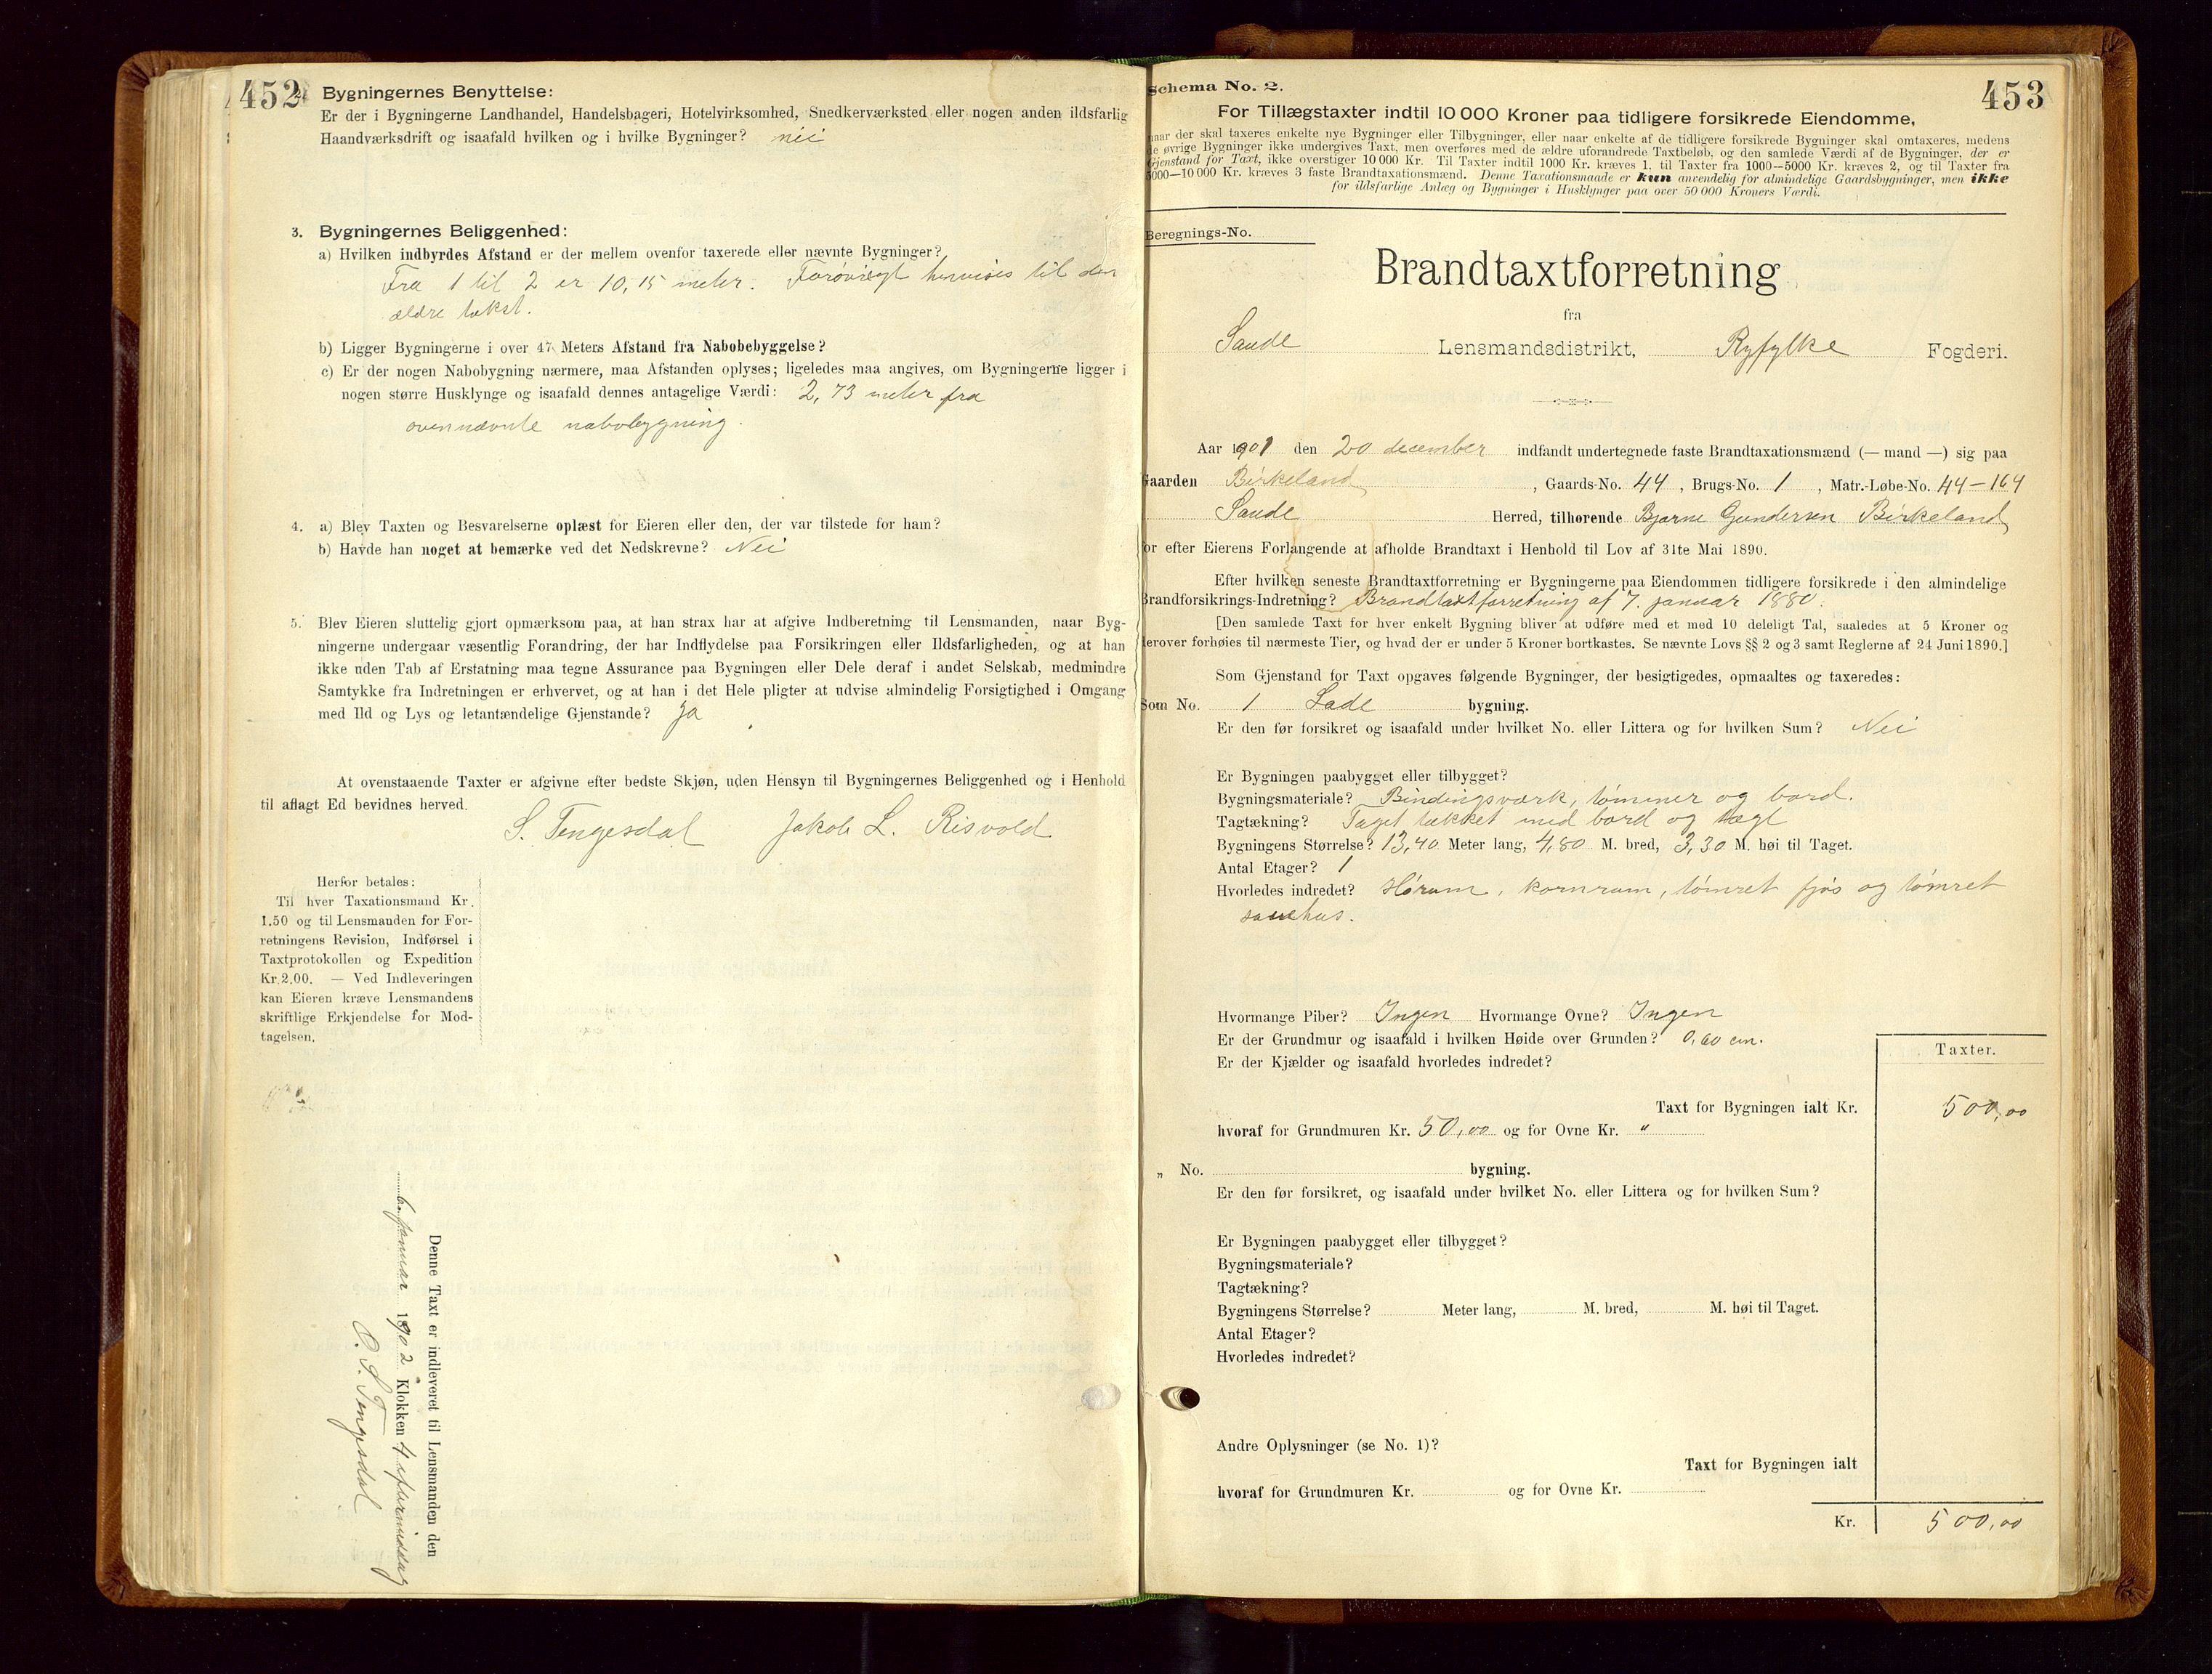 452
Bygningernes Benyttelse:
Er der i Bygningerne Landhandel, Handelsbageri, Hotelvirksomhed, Snedkerværksted eller nogen anden ildsfarlig
Haandværksdrift og isaafald hvilken og i hvilke Bygninger? nei
3. Bygningernes Beliggenhed:
a) Hvilken indbyrdes Afstand er der mellem ovenfor taxerede eller nævnte Bygninger?
Fra 1 til 2 er 10,15 meter. Forøvrigt henvises til den
ældre takst.
b) Ligger Bygningerne i over 47 Meters Afstand fra Nabobebyggelse?
c) Er der nogen Nabobygning nærmere, maa Afstanden oplyses; ligeledes maa angives, om Bygningerne ligger i
nogen større Husklynge og isaafald dennes antagelige Værdi: 2,73 meter fra
ovennævnte nabobygning.
4. a) Blev Taxten og Besvarelserne oplæst for Eieren eller den, der var tilstede for ham?
b) Havde han noget at bemærke ved det Nedskrevne? Nei
5. Blev Eieren sluttelig gjort opmærksom paa, at han strax har at afgive Indberetning til Lensmanden, naar Byg-
ningerne undergaar væsentlig Forandring, der har Indflydelse paa Forsikringen eller Ildsfarligheden, og at han
ikke uden Tab af Erstatning maa tegne Assurance paa Bygningen eller Dele deraf i andet Selskab, medmindre
Samtykke fra Indretningen er erhvervet, og at han i det Hele pligter at udvise almindelig Forsigtighed i Omgang
med Ild og Lys og letantændelige Gjenstande? Ja
At ovenstaaende Taxter er afgivne efter bedste Skjøn, uden Hensyn til Bygningernes Beliggenhed og i Henhold
til aflagt Ed bevidnes herved.
S. Tengesdal Jakob L. Risvold
Herfor betales:
Til hver Taxationsmand Kr.
1.50 og til Lensmanden for For-
retningens Revision, Indførsel i
Taxtprotokollen og Expedition
Kr. 2.00. — Ved Indleveringen
kan Eieren kræve Lensmandens
skriftlige Erkjendelse for Mod-
tagelsen.
Denne Taxt er indleveret til Lensmanden den
6. januar 1902 Klokken 4 eftermiddag
O. S. Tengesdal
Schema No. 2.
453
For Tillægstaxter indtil 10 000 Kroner paa tidligere forsikrede Eiendomme,
naar der skal taxeres enkelte nye Bygninger eller Tilbygninger, eller naar enkelte af de tidligere forsikrede Bygninger skal omtaxeres, medens
de øvrige Bygninger ikke undergives Taxt, men overføres med de ældre uforandrede Taxtbeløb, og den samlede Værdi af de Bygninger, der er
Gjenstand for Taxt, ikke overstiger 10 000 Kr. Til Taxter indtil 1000 Kr. kræves 1, til Taxter fra 1000—5000 Kr. kræves 2, og til Taxter fra
5000—10 000 Kr. kræves 3 faste Brandtaxationsmænd. Denne Taxationsmaade er kun anvendelig for almindelige Gaardsbygninger, men ikke
for ildsfarlige Anlæg og Bygninger i Husklynger paa over 50 000 Kroners Værdi.
Beregnings-No.
Brandtaxtforretning
fra
Saude Lensmandsdistrikt, Ryfylke Fogderi.
Aar 1901 den 20 december indfandt undertegnede faste Brandtaxationsmænd (— mand —) sig paa
Gaarden Birkeland, Gaards-No. 44, Brugs-No. 1, Matr.-Løbe-No. 44-164
Saude Herred, tilhørende Bjarne Gundersen Birkeland
for efter Eierens Forlangende at afholde Brandtaxt i Henhold til Lov af 31te Mai 1890.
Efter hvilken seneste Brandtaxtforretning er Bygningerne paa Eiendommen tidligere forsikrede i den almindelige
Brandforsikrings-Indretning? Brandtaxtforretning af 7. januar 1880.
[Den samlede Taxt for hver enkelt Bygning bliver at udføre med et med 10 deleligt Tal, saaledes at 5 Kroner og
derover forhøies til nærmeste Tier, og hvad der er under 5 Kroner bortkastes. Se nævnte Lovs §§ 2 og 3 samt Reglerne af 24 Juni 1890.]
Som Gjenstand for Taxt opgaves følgende Bygninger, der besigtigedes, opmaaltes og taxeredes:
Som No. 1 Lade bygning.
Er den før forsikret og isaafald under hvilket No. eller Littera og for hvilken Sum? Nei
Er Bygningen paabygget eller tilbygget?
Bygningsmateriale? Bindingsværk, tømmer og bord.
Tagtækning? Taget tækket med bord og tægl
Bygningens Størrelse? 13,40 Meter lang, 4,80 M. bred, 3,30 M. høi til Taget.
Antal Etager? 1
Hvorledes indredet? Hørum, kornrum, tømret fjøs og tømret
sauehus.
Hvormange Piber? Ingen Hvormange Ovne? Ingen
Er der Grundmur og isaafald i hvilken Høide over Grunden? 0,60 cm.
Er der Kjælder og isaafald hvorledes indredet?
Taxter.
Taxt for Bygningen ialt Kr. 500,00
hvoraf for Grundmuren Kr. 50,00 og for Ovne Kr. "
„ No. bygning.
Er den før forsikret, og isaafald under hvilket No. eller Littera og for hvilken Sum?
Er Bygningen paabygget eller tilbygget?
Bygningsmateriale?
Tagtækning?
Bygningens Størrelse? Meter lang, M. bred, M. høi til Taget.
Antal Etager?
Hvorledes indredet?
Andre Oplysninger (se No. 1)?
Taxt for Bygningen ialt
hvoraf for Grundmuren Kr. og for Ovne Kr.
Kr. 500,00